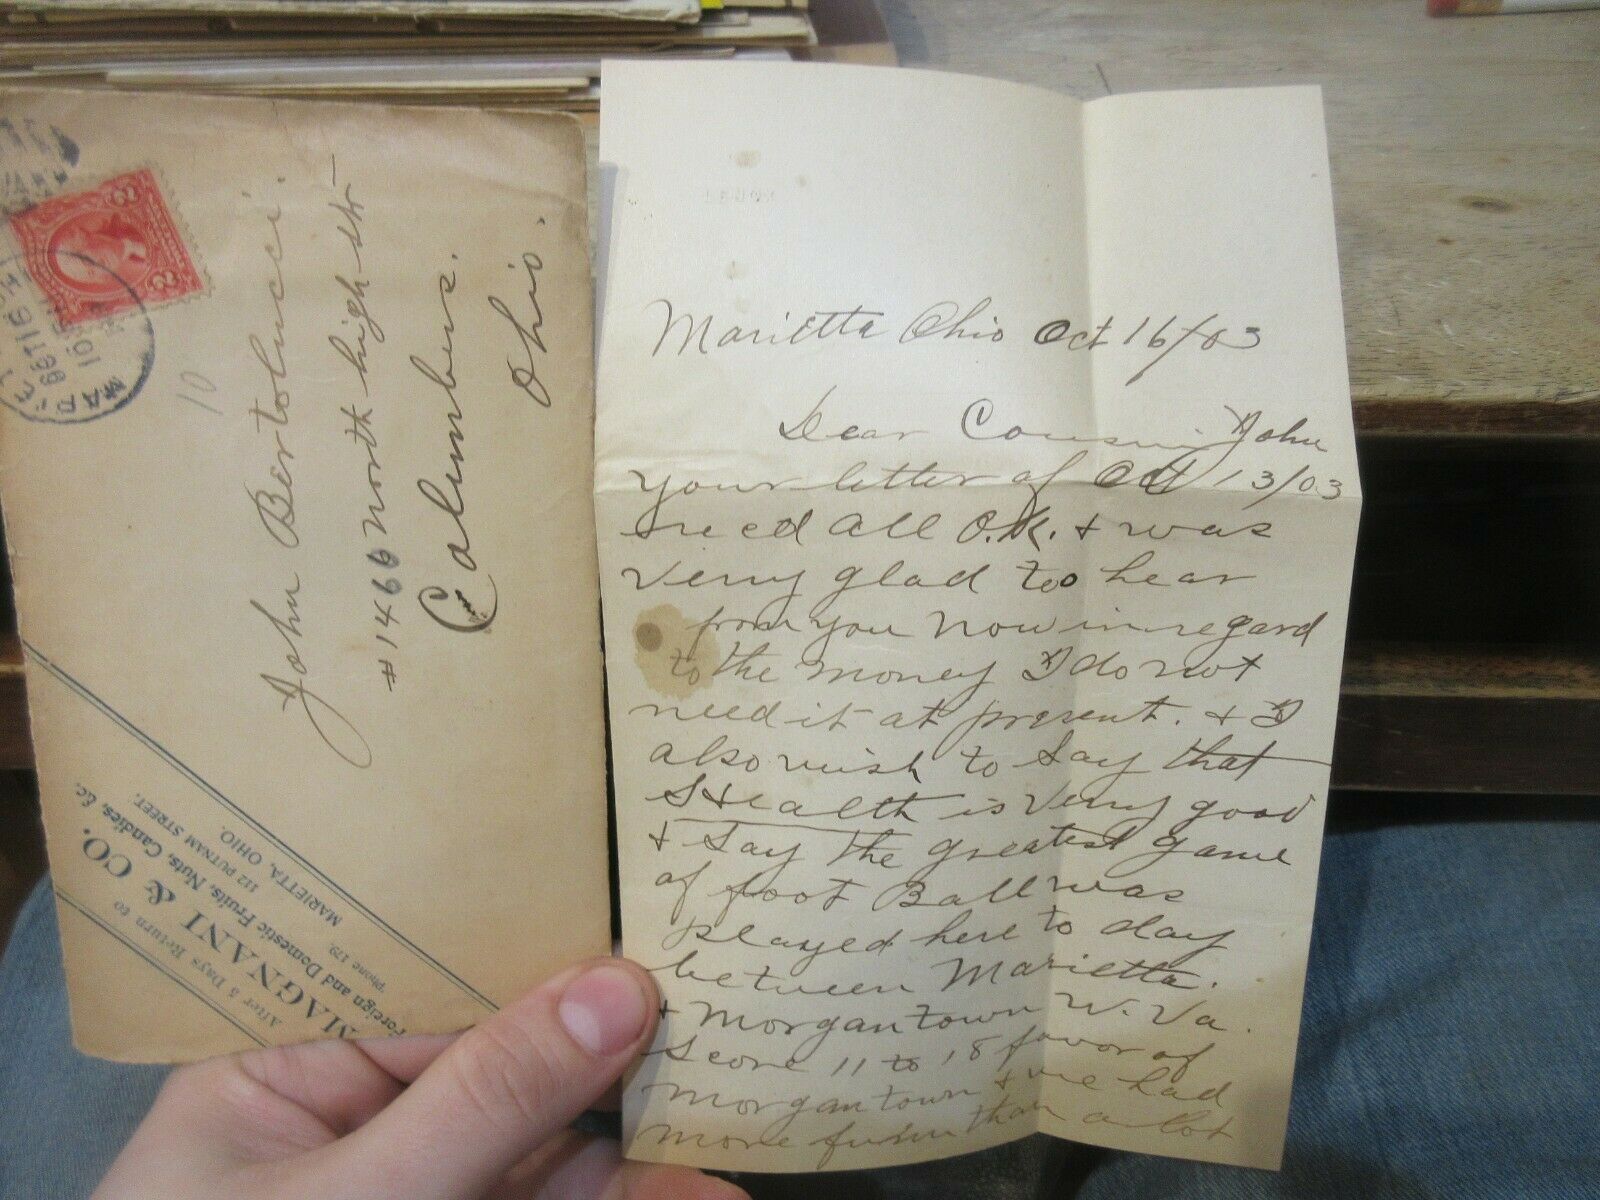 John Bertolucci.
#1466 north high str
Columbus.
Ohio.
10
2 2
OCT 16
10
After 5 Days Return to
MAGNANI & CO.
Foreign and Domestic Fruits, Nuts, Candies, &c.
Phone 179. 112 PUTNAM STREET,
MARIETTA, OHIO.
Marietta Ohio Oct 16/03
Dear Cousin John
your letter of Oct 13/03
recd all O.K. & was
very glad too hear
from you now in regard
to the money I do not
need it at present. & I
also wish to say that
Health is very good
& say the greatest game
of foot Ball was
played here to day
between Marietta.
& Morgantown W. Va.
Score 11 to 18 favor of
Morgantown & we had
more fun than a lot